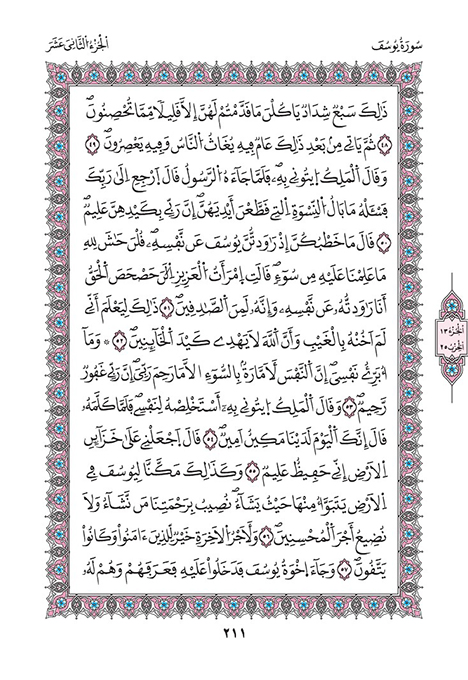 سُورَةُ يُوسُفَ
الجُزْءُ الثَّانِي عَشَرَ
ذَٰلِكَ سَبْعٌ شِدَادٌ يَاكُلْنَ مَا قَدَّمْتُمْ لَهُنَّ إِلَّا قَلِيلًا مِّمَّا تُحْصِنُونَ
٤٨ ثُمَّ يَاتِي مِنۢ بَعْدِ ذَٰلِكَ عَامٌ فِيهِ يُغَاثُ النَّاسُ وَفِيهِ يَعْصِرُونَ ٤٩
وَقَالَ الْمَلِكُ اِيتُونِي بِهِۦ فَلَمَّا جَآءَهُ الرَّسُولُ قَالَ اَرْجِعِ اِلَىٰ رَبِّكَ
فَسْـَٔلْهُ مَا بَالُ النِّسْوَةِ الَّٰتِي قَطَّعْنَ أَيْدِيَهُنَّ إِنَّ رَبِّي بِكَيْدِهِنَّ عَلِيمٌ
٥٠ قَالَ مَا خَطْبُكُنَّ إِذْ رَٰوَدتُّنَّ يُوسُفَ عَن نَّفْسِهِۦ قُلْنَ حَٰشَ لِلهِ
مَا عَلِمْنَا عَلَيْهِ مِن سُوٓءٍ قَالَتِ اِمْرَأَتُ الْعَزِيزِ الَٰنَ حَصْحَصَ الْحَقُّ
أَنَا رَٰوَدتُّهُۥ عَن نَّفْسِهِۦ وَإِنَّهُۥ لَمِنَ الصَّٰدِقِينَ ٥١ ذَٰلِكَ لِيَعْلَمَ أَنِّي
لَمَ اَخُنْهُ بِالْغَيْبِ وَأَنَّ اللَّهَ لَا يَهْدِي كَيْدَ الْخَآئِنِينَ ٥٢ * وَمَآ
أُبَرِّئُ نَفْسِيَ إِنَّ النَّفْسَ لَأَمَّارَةٌۢ بِالسُّوٓءِ الَّا مَا رَحِمَ رَبِّيَ إِنَّ رَبِّي غَفُورٌ
رَّحِيمٌ ٥٣ وَقَالَ الْمَلِكُ اِيتُونِي بِهِۦٓ أَسْتَخْلِصْهُ لِنَفْسِي فَلَمَّا كَلَّمَهُۥ
قَالَ إِنَّكَ الْيَوْمَ لَدَيْنَا مَكِينٌ اَمِينٌ ٥٤ قَالَ اَجْعَلْنِي عَلَىٰ خَزَآئِنِ
الْأَرْضِ إِنِّي حَفِيظٌ عَلِيمٌ ٥٥ وَكَذَٰلِكَ مَكَّنَّا لِيُوسُفَ فِي
الْأَرْضِ يَتَبَوَّأُ مِنْهَا حَيْثُ يَشَآءُ نُصِيبُ بِرَحْمَتِنَا مَن نَّشَآءُ وَلَا
نُضِيعُ أَجْرَ الْمُحْسِنِينَ ٥٦ وَلَأَجْرُ الْآخِرَةِ خَيْرٌ لِّلَّذِينَ ءَامَنُوا وَكَانُوا
يَتَّقُونَ ٥٧ وَجَآءَ اخْوَةُ يُوسُفَ فَدَخَلُوا عَلَيْهِ فَعَرَفَهُمْ وَهُمْ لَهُۥ
الجُزْء ١٣
الحِزْب ٢٥
٢١١